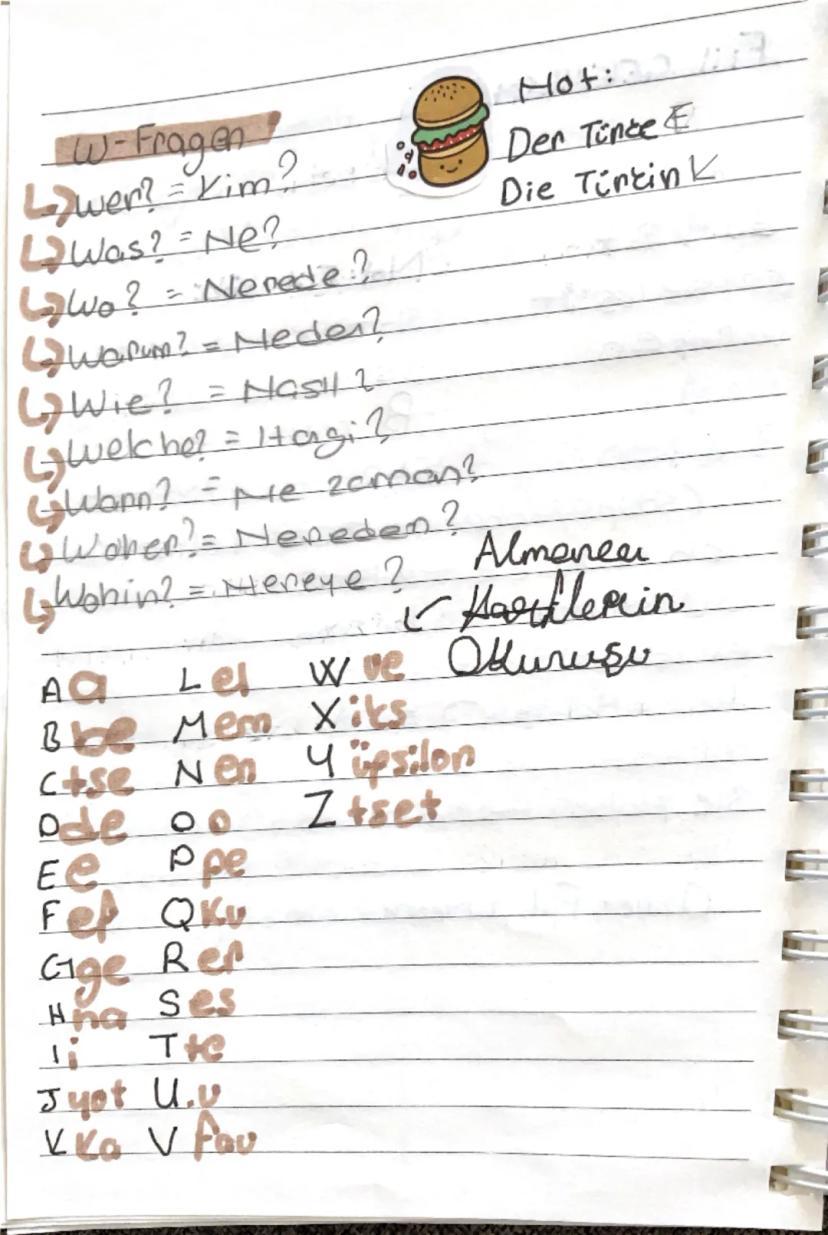 W-Fragen
Wer? = Kim?
Was? = Ne?
Wo? = Nerede?
Warum? = Neden?
Wie? = Nasıl?
Welche? = Hagi?
Wann? = Ne zaman?
Woher? = Nereden?
Wohin? = Nereye?
Not:
Der Türke E
Die Türkin K
Almanca
Harflerin
Okunuşu
A a
B be
C tse
D de
E e
F ef
G ge
H ha
I i
J yot
K ka
L el
M em
N en
O o
P pe
Q ku
R er
S es
T te
U u
V fau
W ve
X iks
Y üpsilon
Z tset